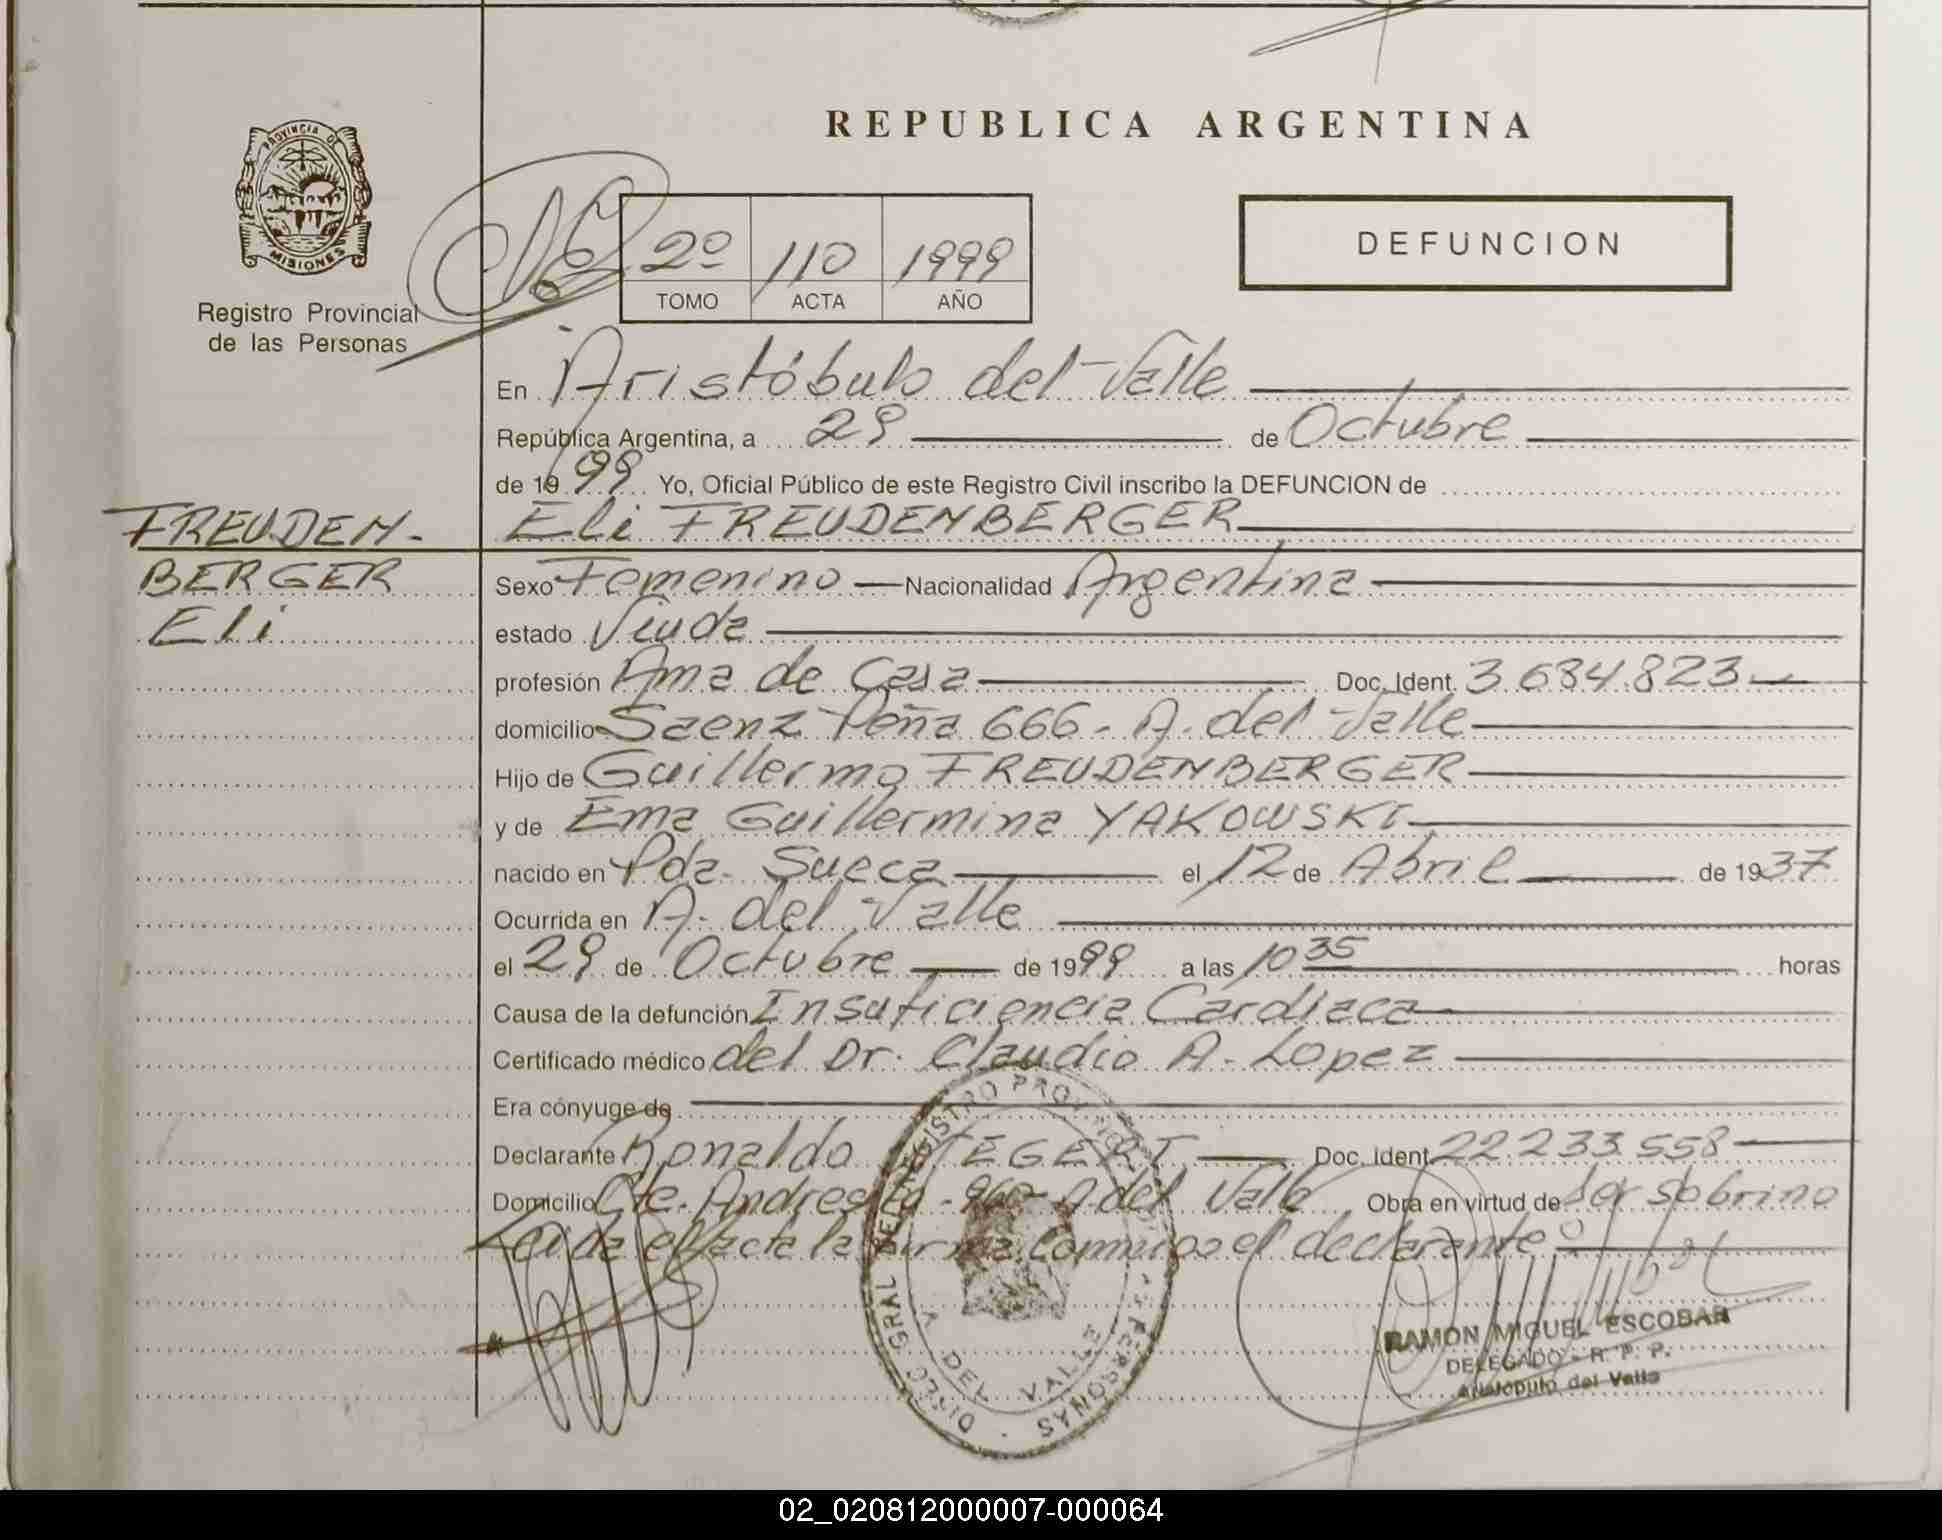 REPUBLICA ARGENTINA
PROVINCIA DE
MISIONES
Registro Provincial
de las Personas
2º 110 1999
TOMO ACTA AÑO
DEFUNCION
En Aristóbulo del Valle
República Argentina, a 29 de Octubre
de 1999 Yo, Oficial Público de este Registro Civil inscribo la DEFUNCION de
Eli FREUDENBERGER
FREUDEN-
BERGER
Eli
Sexo Femenino Nacionalidad Argentina
estado Viuda
profesión Ama de Casa Doc. Ident. 3.684.823
domicilio Saenz Peña 666 - A. del Valle
Hijo de Guillermo FREUDENBERGER
y de Ema Guillermina YAKOWSKI
nacido en Pda. Sueca el 12 de Abril de 1937
Ocurrida en A. del Valle
el 29 de Octubre de 1999 a las 10 35 horas
Causa de la defunción Insuficiencia Cardiaca
Certificado médico del Dr. Claudio A. Lopez
Era cónyuge de
Declarante Ronaldo Doc. Ident. 22.233.558
Domicilio Cte. Andresito - 960 - A. del Valle Obra en virtud de ser sobrino
Leida el acta la firma conmigo el declarante
DIREC GRAL DEL REGISTRO PROVINCIAL DE LAS PERSONAS
A. DEL VALLE
RAMON MIGUEL ESCOBAR
DELEGADO - R. P. P.
Aristobulo del Valle
02_020812000007-000064